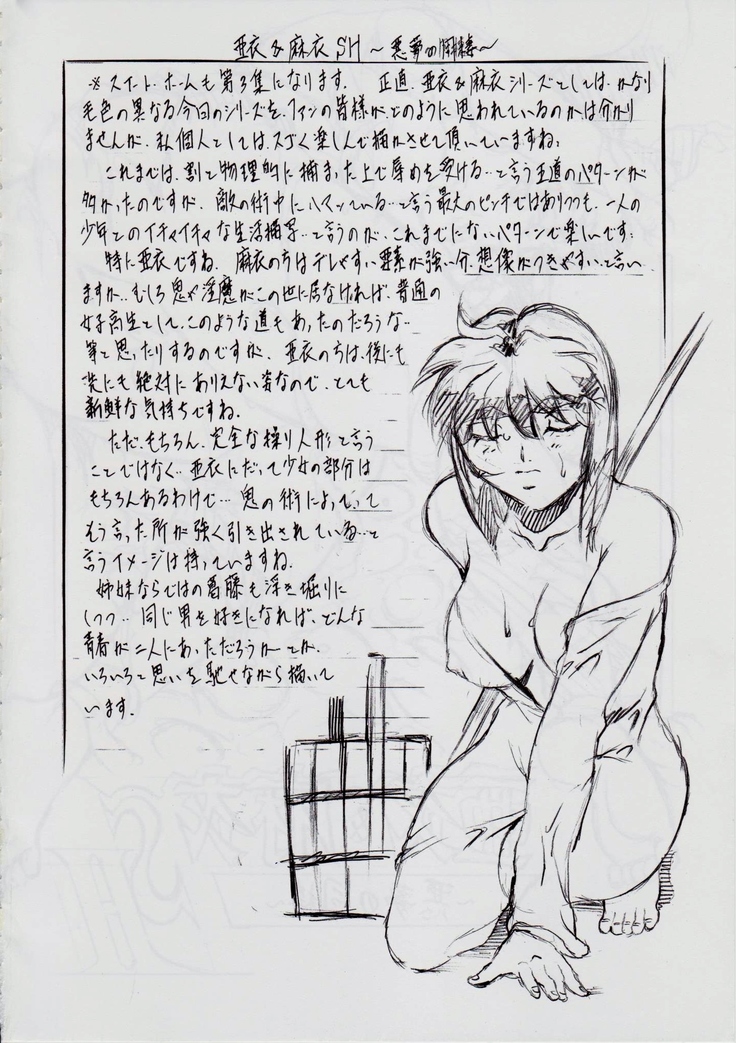 亜衣&麻衣SH ～悪夢の
※スイート・ホームも第3集になります。 正直、亜衣&麻衣シリーズとしては、かなり
毛色の異なる今回のシリーズを、ファンの皆様が、どのように思われているのかは分かり
ませんが、私個人としては、スゴく楽しんで描かさせて頂いていますね。
これまでは、割と物理的に捕まった上で辱めを受ける…と言う王道のパターンが
多かったのですが、敵の術中にハマっている…と言う最大のピンチではありつつも、一人の
少年とのイチャイチャな生活描写…と言うのが、これまでにないパターンで楽しいです…
特に亜衣ですね。 麻衣のちはデレやすい要素が強い分、想像がつきやすい…と言い
ますか…むしろ鬼や淫魔がこの世に居なければ、普通の
女子高生として、このような道もあったのだろうな…
等と思ったりするのですが、亜衣のちは、後にも
先にも絶対にありえない姿なので、とても
新鮮な気持ちですね。
ただ、もちろん、完全な操り人形と言う
ことではなく…亜衣にだって少女の部分は
もちろんあるわけで…鬼の術によって、って
もう言った所が強く引き出されている…と
言うイメージは持っていますね。
姉妹ならではの葛藤も浮き堀りに
しつつ…同じ男を好きになれば、どんな
青春が二人にあっただろうか…とか、
いろいろと思いを馳せながら描いて
います。